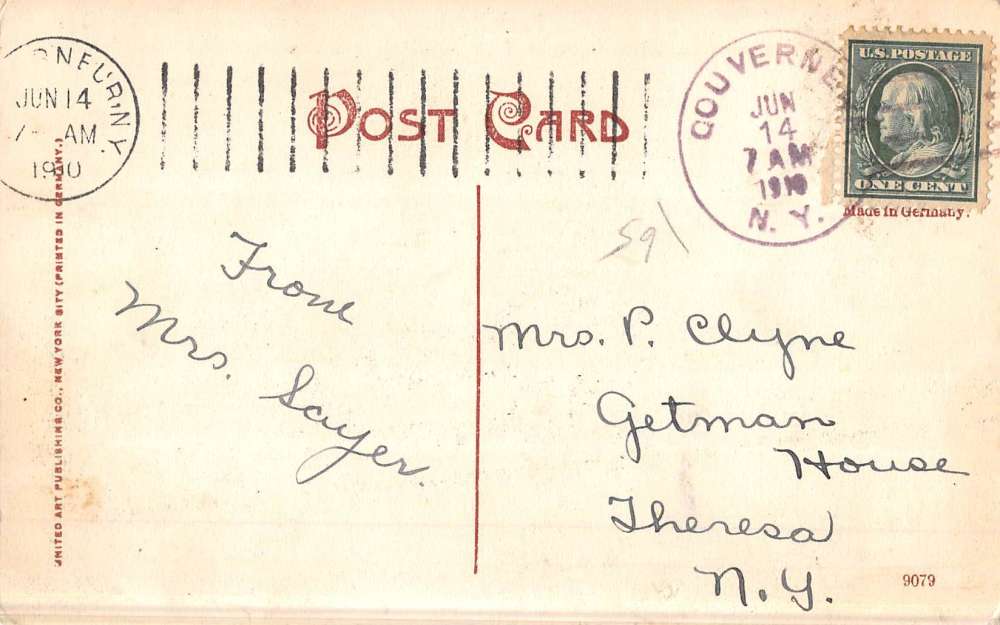 JUN 14
AM
1910
N.Y.
POST CARD
GOUVERNE
JUN
14
7 AM
1910
N. Y.
U.S. POSTAGE
ONE CENT
Made in Germany.
591
From
Mrs. Sayer.
Mrs. P. Clyne
Getman
House
Theresa
N.Y.
UNITED ART PUBLISHING CO., NEW YORK CITY (PRINTED IN GERMANY.)
9079